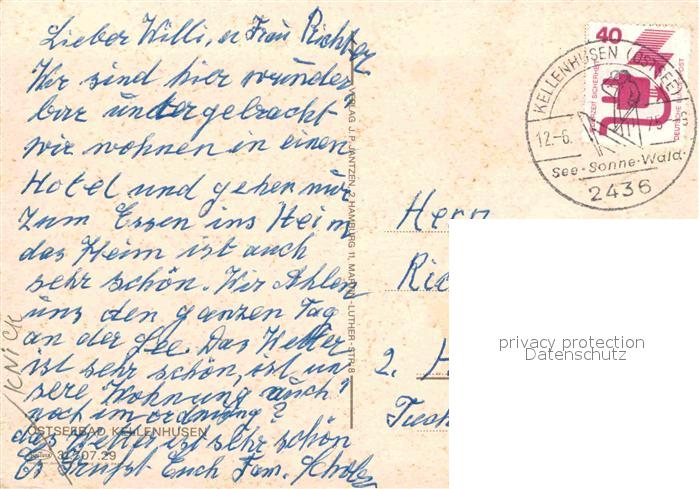 Lieber Willi, u Frau Richter
Wir sind hier wunder
bar untergebracht
wir wohnen in einen
Hotel und gehen nur
zum Essen ins Heim
das Heim ist auch
sehr schön. Wir
uns den ganzen Tag
an der See. Das Wetter
ist sehr schön, ist un
sere Wohnung auch
noch im ordnung?
das Wetter ist sehr schön
Es Grüßt Euch Fam.
KNICK
OSTSEEBAD KELLENHUSEN
07.29
VERLAG J. P. JANTZEN, 2 HAMBURG 11, MARTIN-LUTHER-STR. 8
40
JEDERZEIT SICHERHEIT
DEUTSCHE BUNDESPOST
KELLENHUSEN (OSTSEE)
12.-6. 75
See-Sonne-Wald
2436
Herrn
Ric
2. H
Tisch
privacy protection
Datenschutz